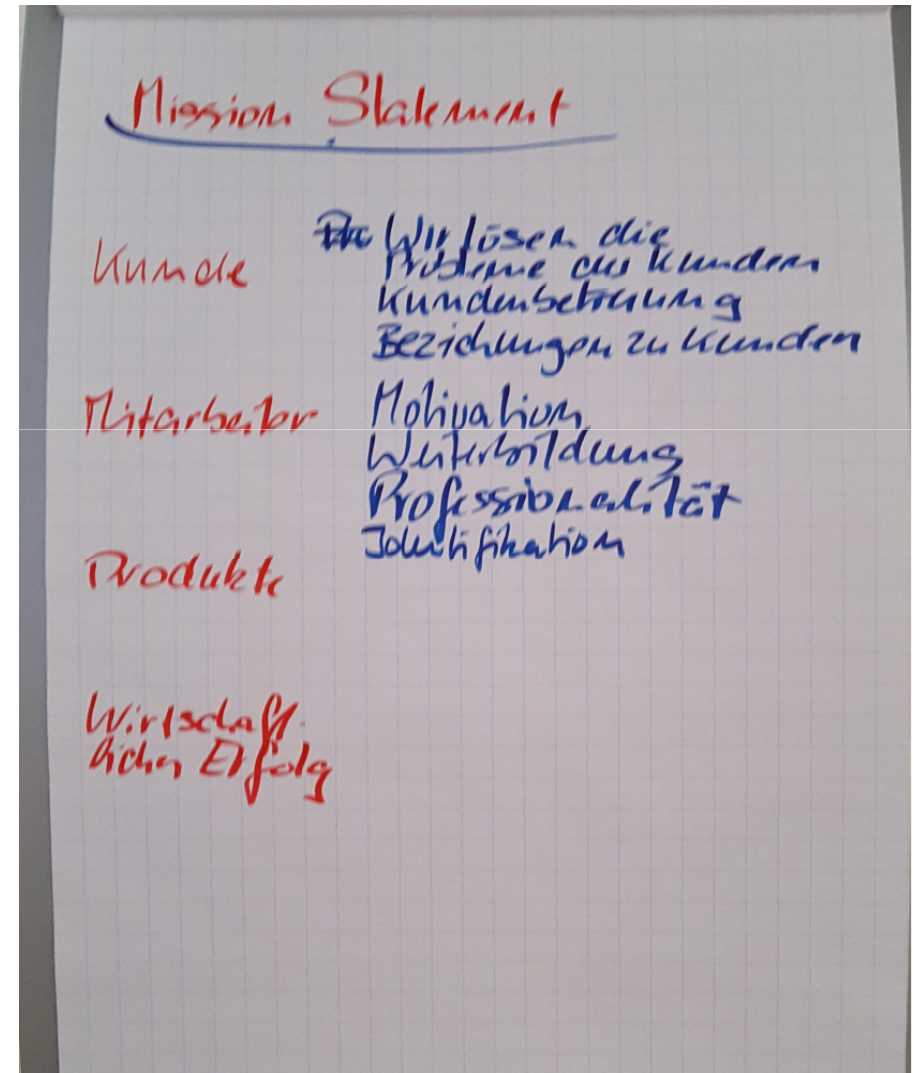 Mission Statement
Kunde
Wir lösen die
Probleme des Kunden
Kundenbetreuung
Beziehungen zu Kunden
Mitarbeiter
Motivation
Weiterbildung
Professionalität
Identifikation
Produkte
Wirtschaft-
licher Erfolg